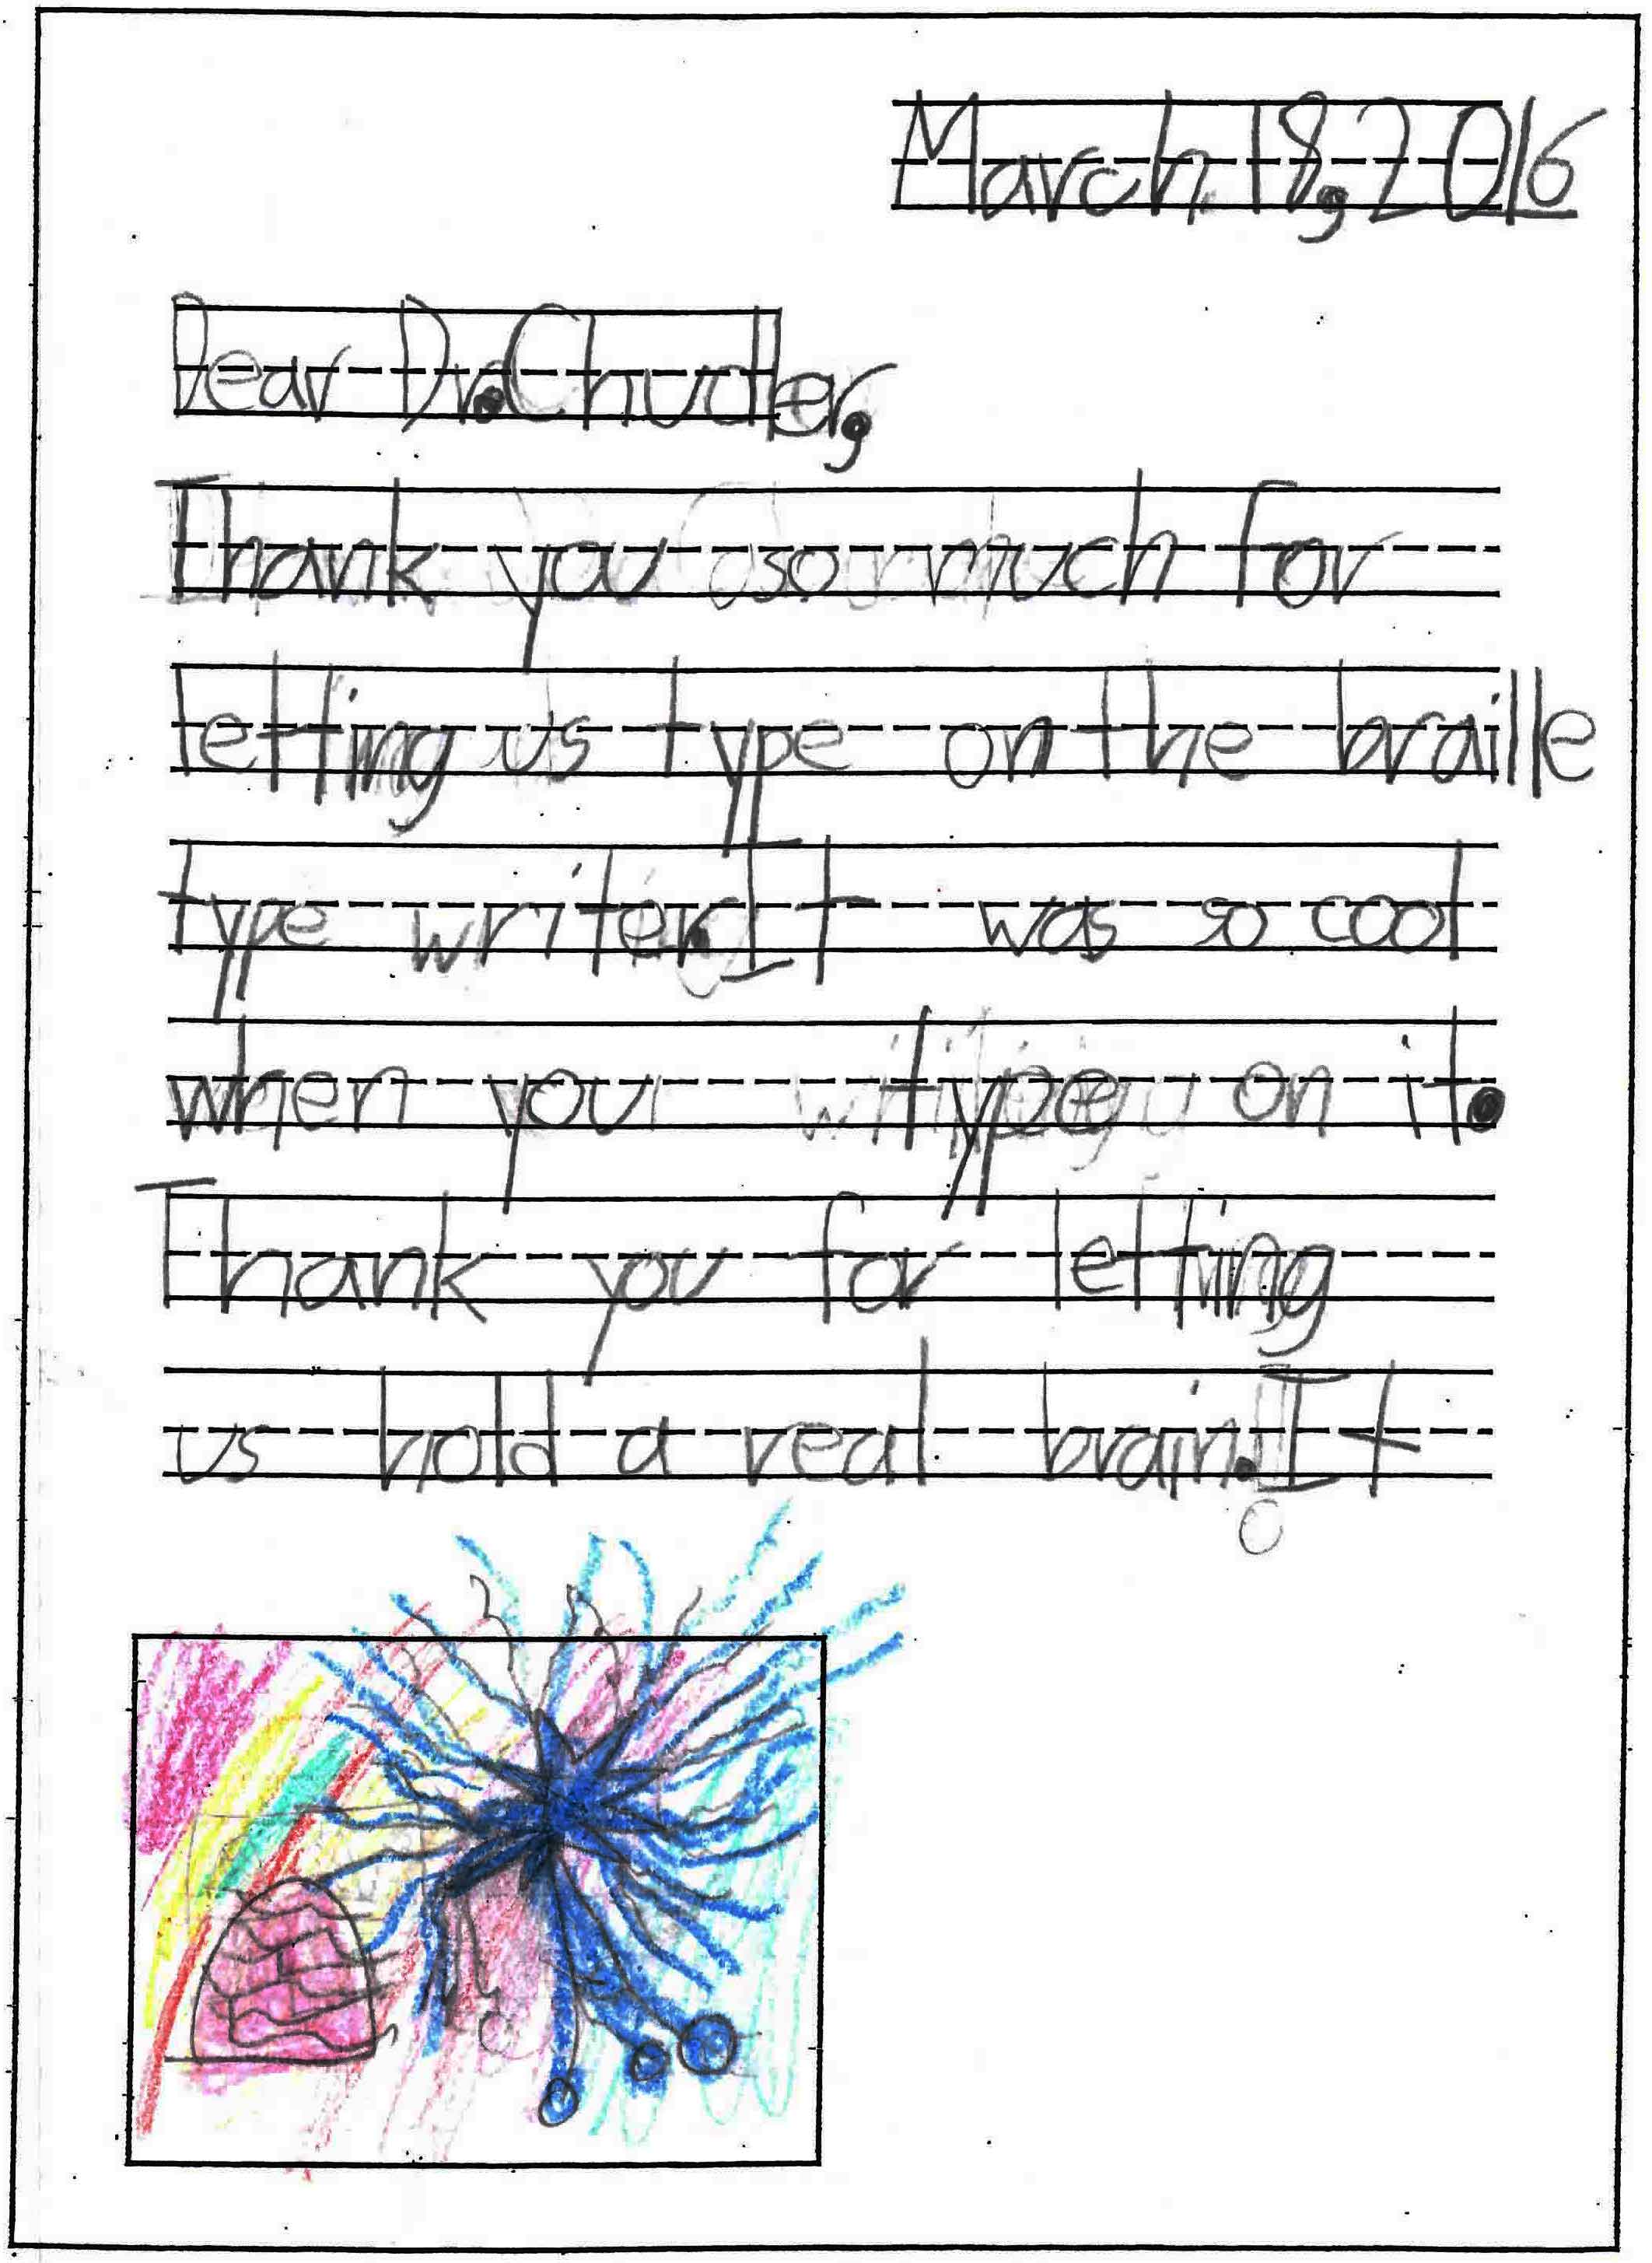 March 18, 2016
Dear Dr. Chudler,
Thank you so much for
letting us type on the braille
type writer. It was so cool
when you type on it.
Thank you for letting
us hold a real brain. It